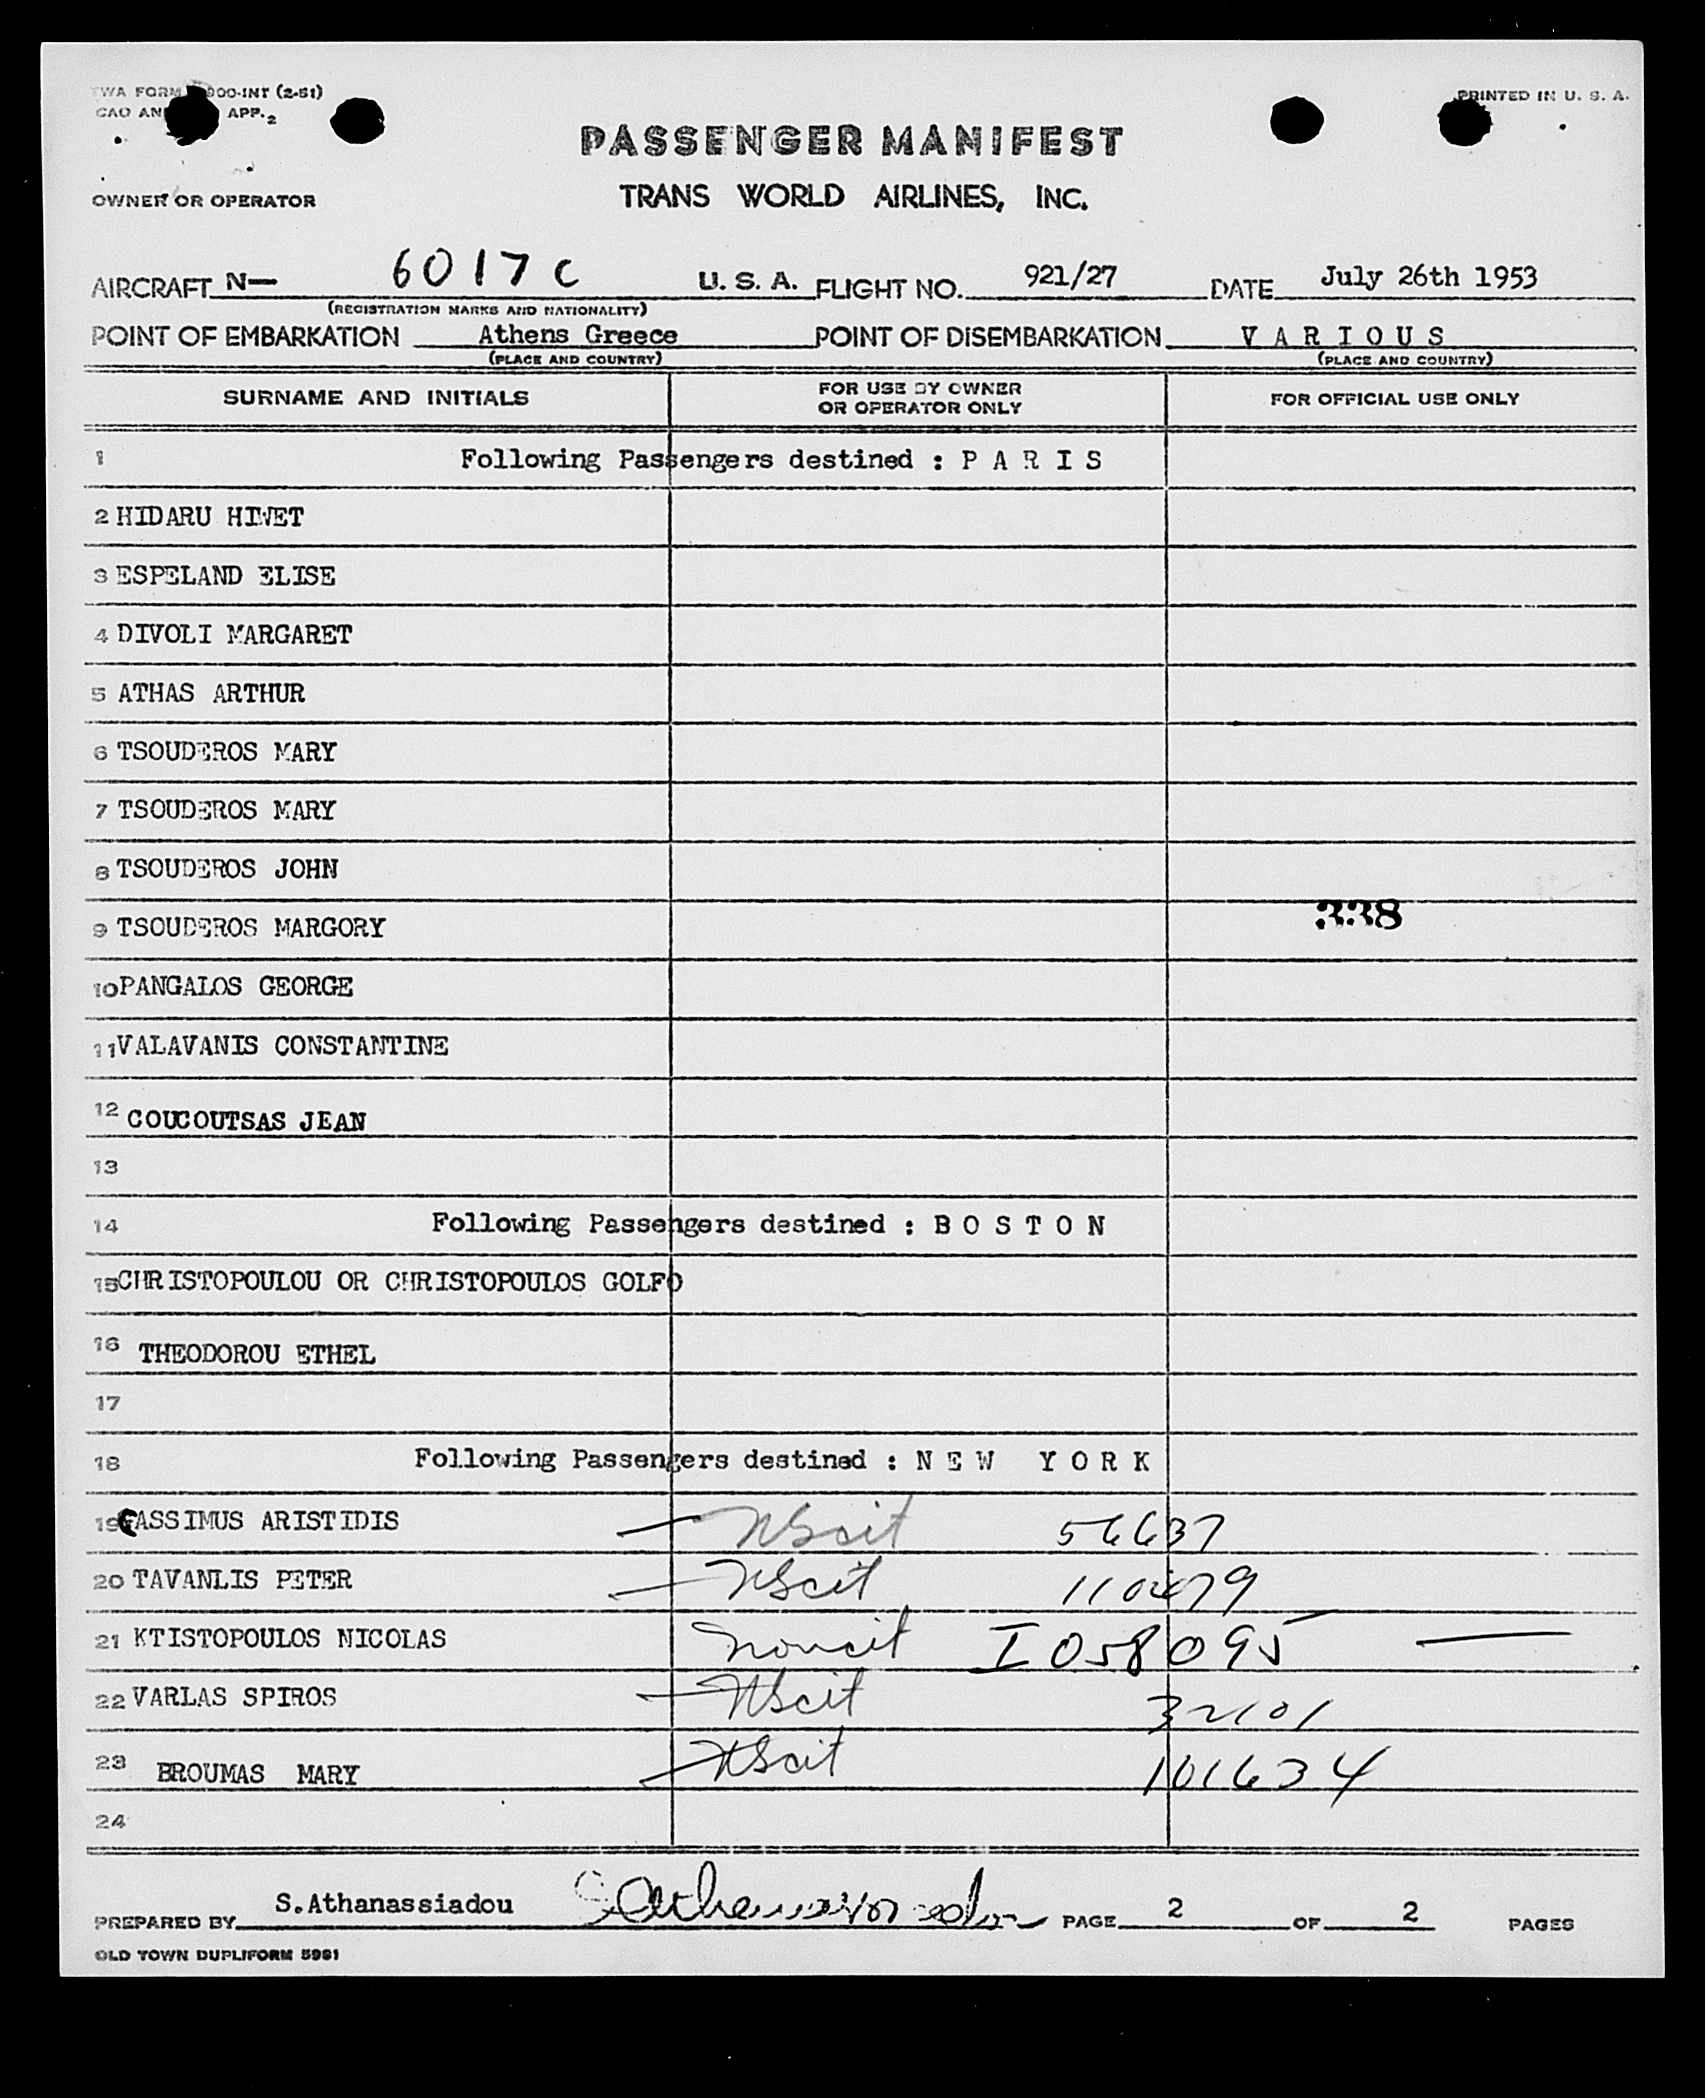 TWA FORM 900-INT (2-51)
PRINTED IN U. S. A.
CAO AN APP. 2
PASSENGER MANIFEST
OWNER OR OPERATOR
TRANS WORLD AIRLINES, INC.
AIRCRAFT N— 6017C U. S. A. FLIGHT NO. 921/27 DATE July 26th 1953
(REGISTRATION MARKS AND NATIONALITY)
POINT OF EMBARKATION Athens Greece POINT OF DISEMBARKATION V A R I O U S
(PLACE AND COUNTRY) (PLACE AND COUNTRY)
SURNAME AND INITIALS FOR USE BY OWNER OR OPERATOR ONLY FOR OFFICIAL USE ONLY
1 Following Passengers destined : P A R I S
2 HIDARU HIWET
3 ESPELAND ELISE
4 DIVOLI MARGARET
5 ATHAS ARTHUR
6 TSOUDEROS MARY
7 TSOUDEROS MARY
8 TSOUDEROS JOHN
9 TSOUDEROS MARGORY 338
10 PANGALOS GEORGE
11 VALAVANIS CONSTANTINE
12 COUCOUTSAS JEAN
13
14 Following Passengers destined : B O S T O N
15 CHRISTOPOULOU OR CHRISTOPOULOS GOLFO
16 THEODOROU ETHEL
17
18 Following Passengers destined : N E W Y O R K
19 CASSIMUS ARISTIDIS — UScit 56637
20 TAVANLIS PETER — UScit
21 KTISTOPOULOS NICOLAS noncit I 058095 —
22 VARLAS SPIROS — UScit 32101
23 BROUMAS MARY — UScit 101634
24
PREPARED BY S.Athanassiadou S Athanassiadou PAGE 2 OF 2 PAGES
OLD TOWN DUPLIFORM 5981